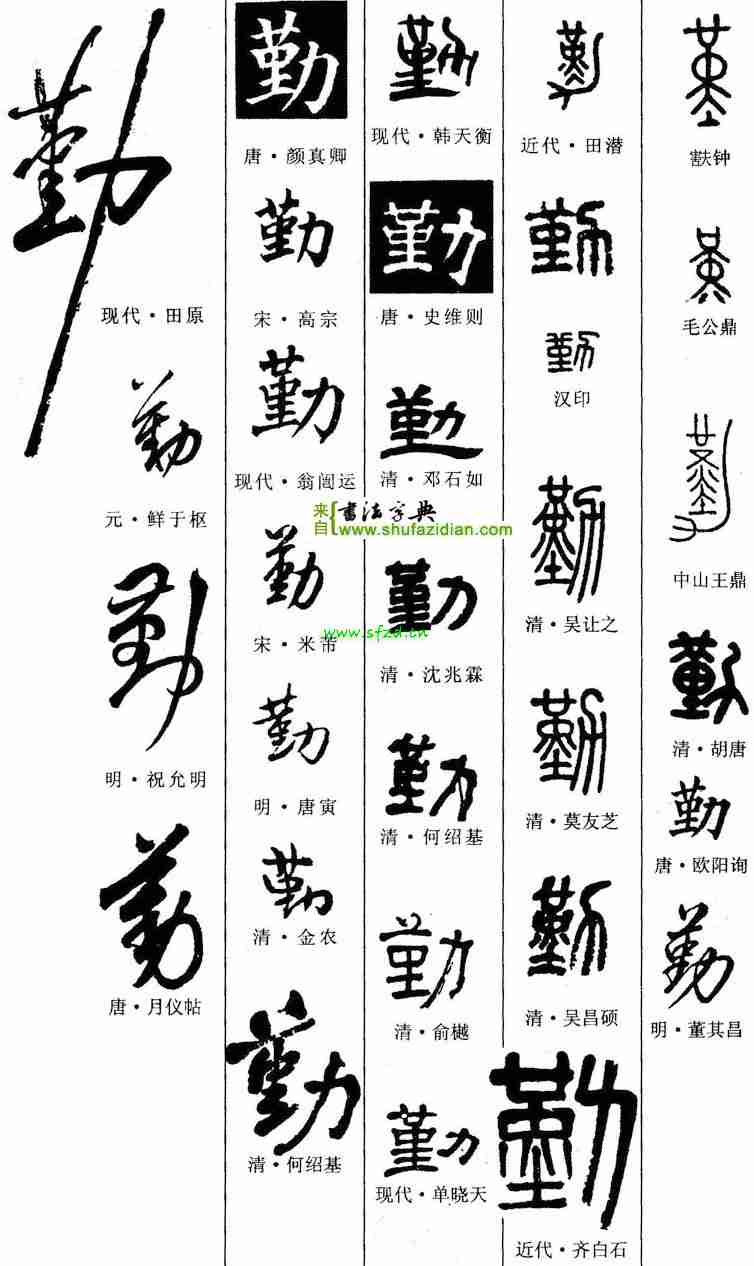 堇
㝬钟
堇
毛公鼎
勤
中山王鼎
勤
清·胡唐
勤
唐·欧阳询
勤
明·董其昌
勤
近代·田潜
勤
勤
汉印
勤
清·吴让之
勤
清·莫友芝
勤
清·吴昌硕
勤
近代·齐白石
勤
现代·韩天衡
勤
唐·史维则
勤
清·邓石如
来自
書法字典
www.shufazidian.com
勤
清·沈兆霖
勤
清·何绍基
勤
清·俞樾
勤
现代·单晓天
勤
唐·颜真卿
勤
宋·高宗
勤
现代·翁闿运
勤
www.sfzd.cn
宋·米芾
勤
明·唐寅
勤
清·金农
勤
清·何绍基
勤
现代·田原
勤
元·鲜于枢
勤
明·祝允明
勤
唐·月仪帖